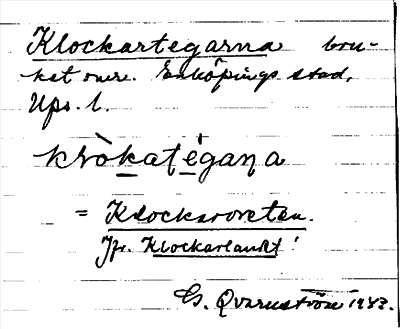 Klockartegarna bru-
ket omr. Enköpings stad,
Ups. l.
kròkatégaṇa
= Klocksroreten.
Jfr. Klockarlandt!
G. Qvarnström 1943.